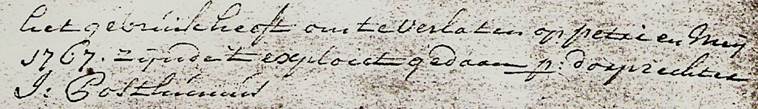 het gebruik heeft om te verlaten op petri en meij
1767. zijnde 't exploict gedaan p: dorprechter
J: Posthumus